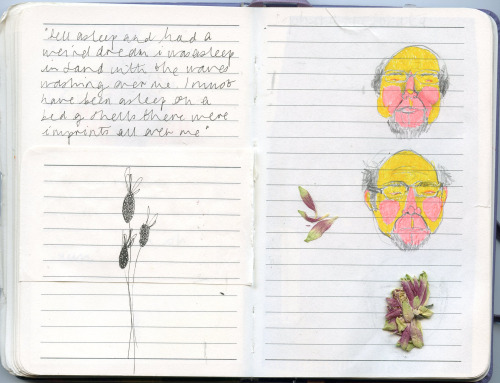 "fell asleep and had a
weird dream i was asleep
in sand with the waves
washing over me. I must
have been asleep on a
bed of shells there were
imprints all over me"